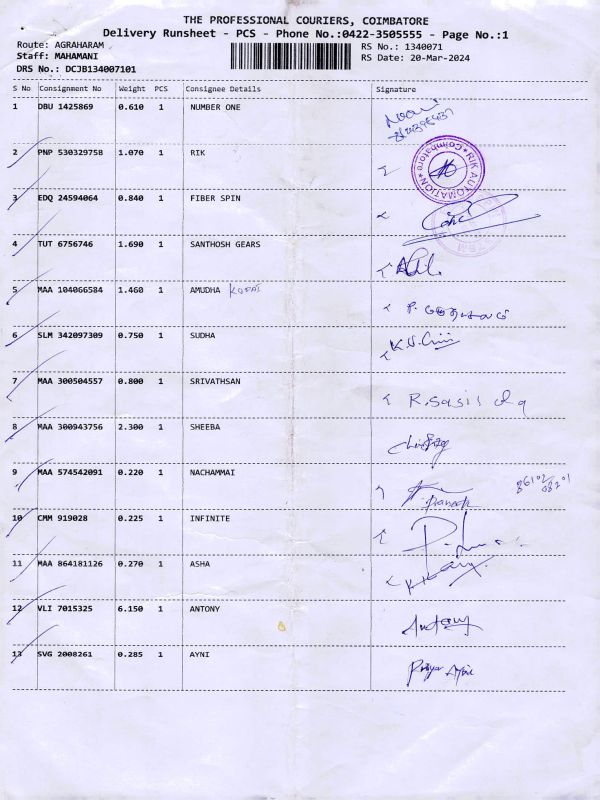 THE PROFESSIONAL COURIERS, COIMBATORE
Delivery Runsheet - PCS - Phone No.:0422-3505555 - Page No.:1
Route: AGRAHARAM RS No.: 1340071
Staff: MAHAMANI RS Date: 20-Mar-2024
DRS No.: DCJB134007101
S No Consignment No Weight PCS Consignee Details Signature
1 DBU 1425869 0.610 1 NUMBER ONE
2 PNP 530329758 1.070 1 RIK RIK AUTOMATION Coimbatore
3 EDQ 24594064 0.840 1 FIBER SPIN
4 TUT 6756746 1.690 1 SANTHOSH GEARS
5 MAA 104066584 1.460 1 AMUDHA
6 SLM 342097309 0.750 1 SUDHA
7 MAA 300504557 0.800 1 SRIVATHSAN R.Sasis
8 MAA 300943756 2.300 1 SHEEBA
9 MAA 574542091 0.220 1 NACHAMMAI
10 CMM 919028 0.225 1 INFINITE
11 MAA 864181126 0.270 1 ASHA
12 VLI 7015325 6.150 1 ANTONY Antony
13 SVG 2008261 0.285 1 AYNI Priya Ayni